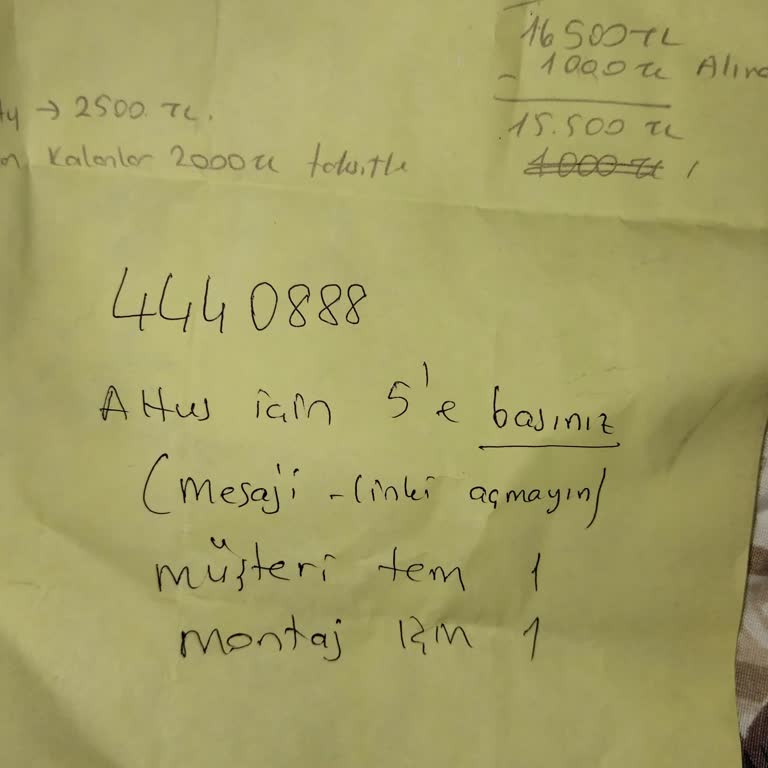 16 500 TL
- 1000 TL
→ 2500 TL.
15.500 TL
Kalanlar 2000 TL taksitle
1000 TL
444 0888
Altus için 5'e basınız
(mesajı - linki açmayın)
müşteri tem 1
montaj için 1